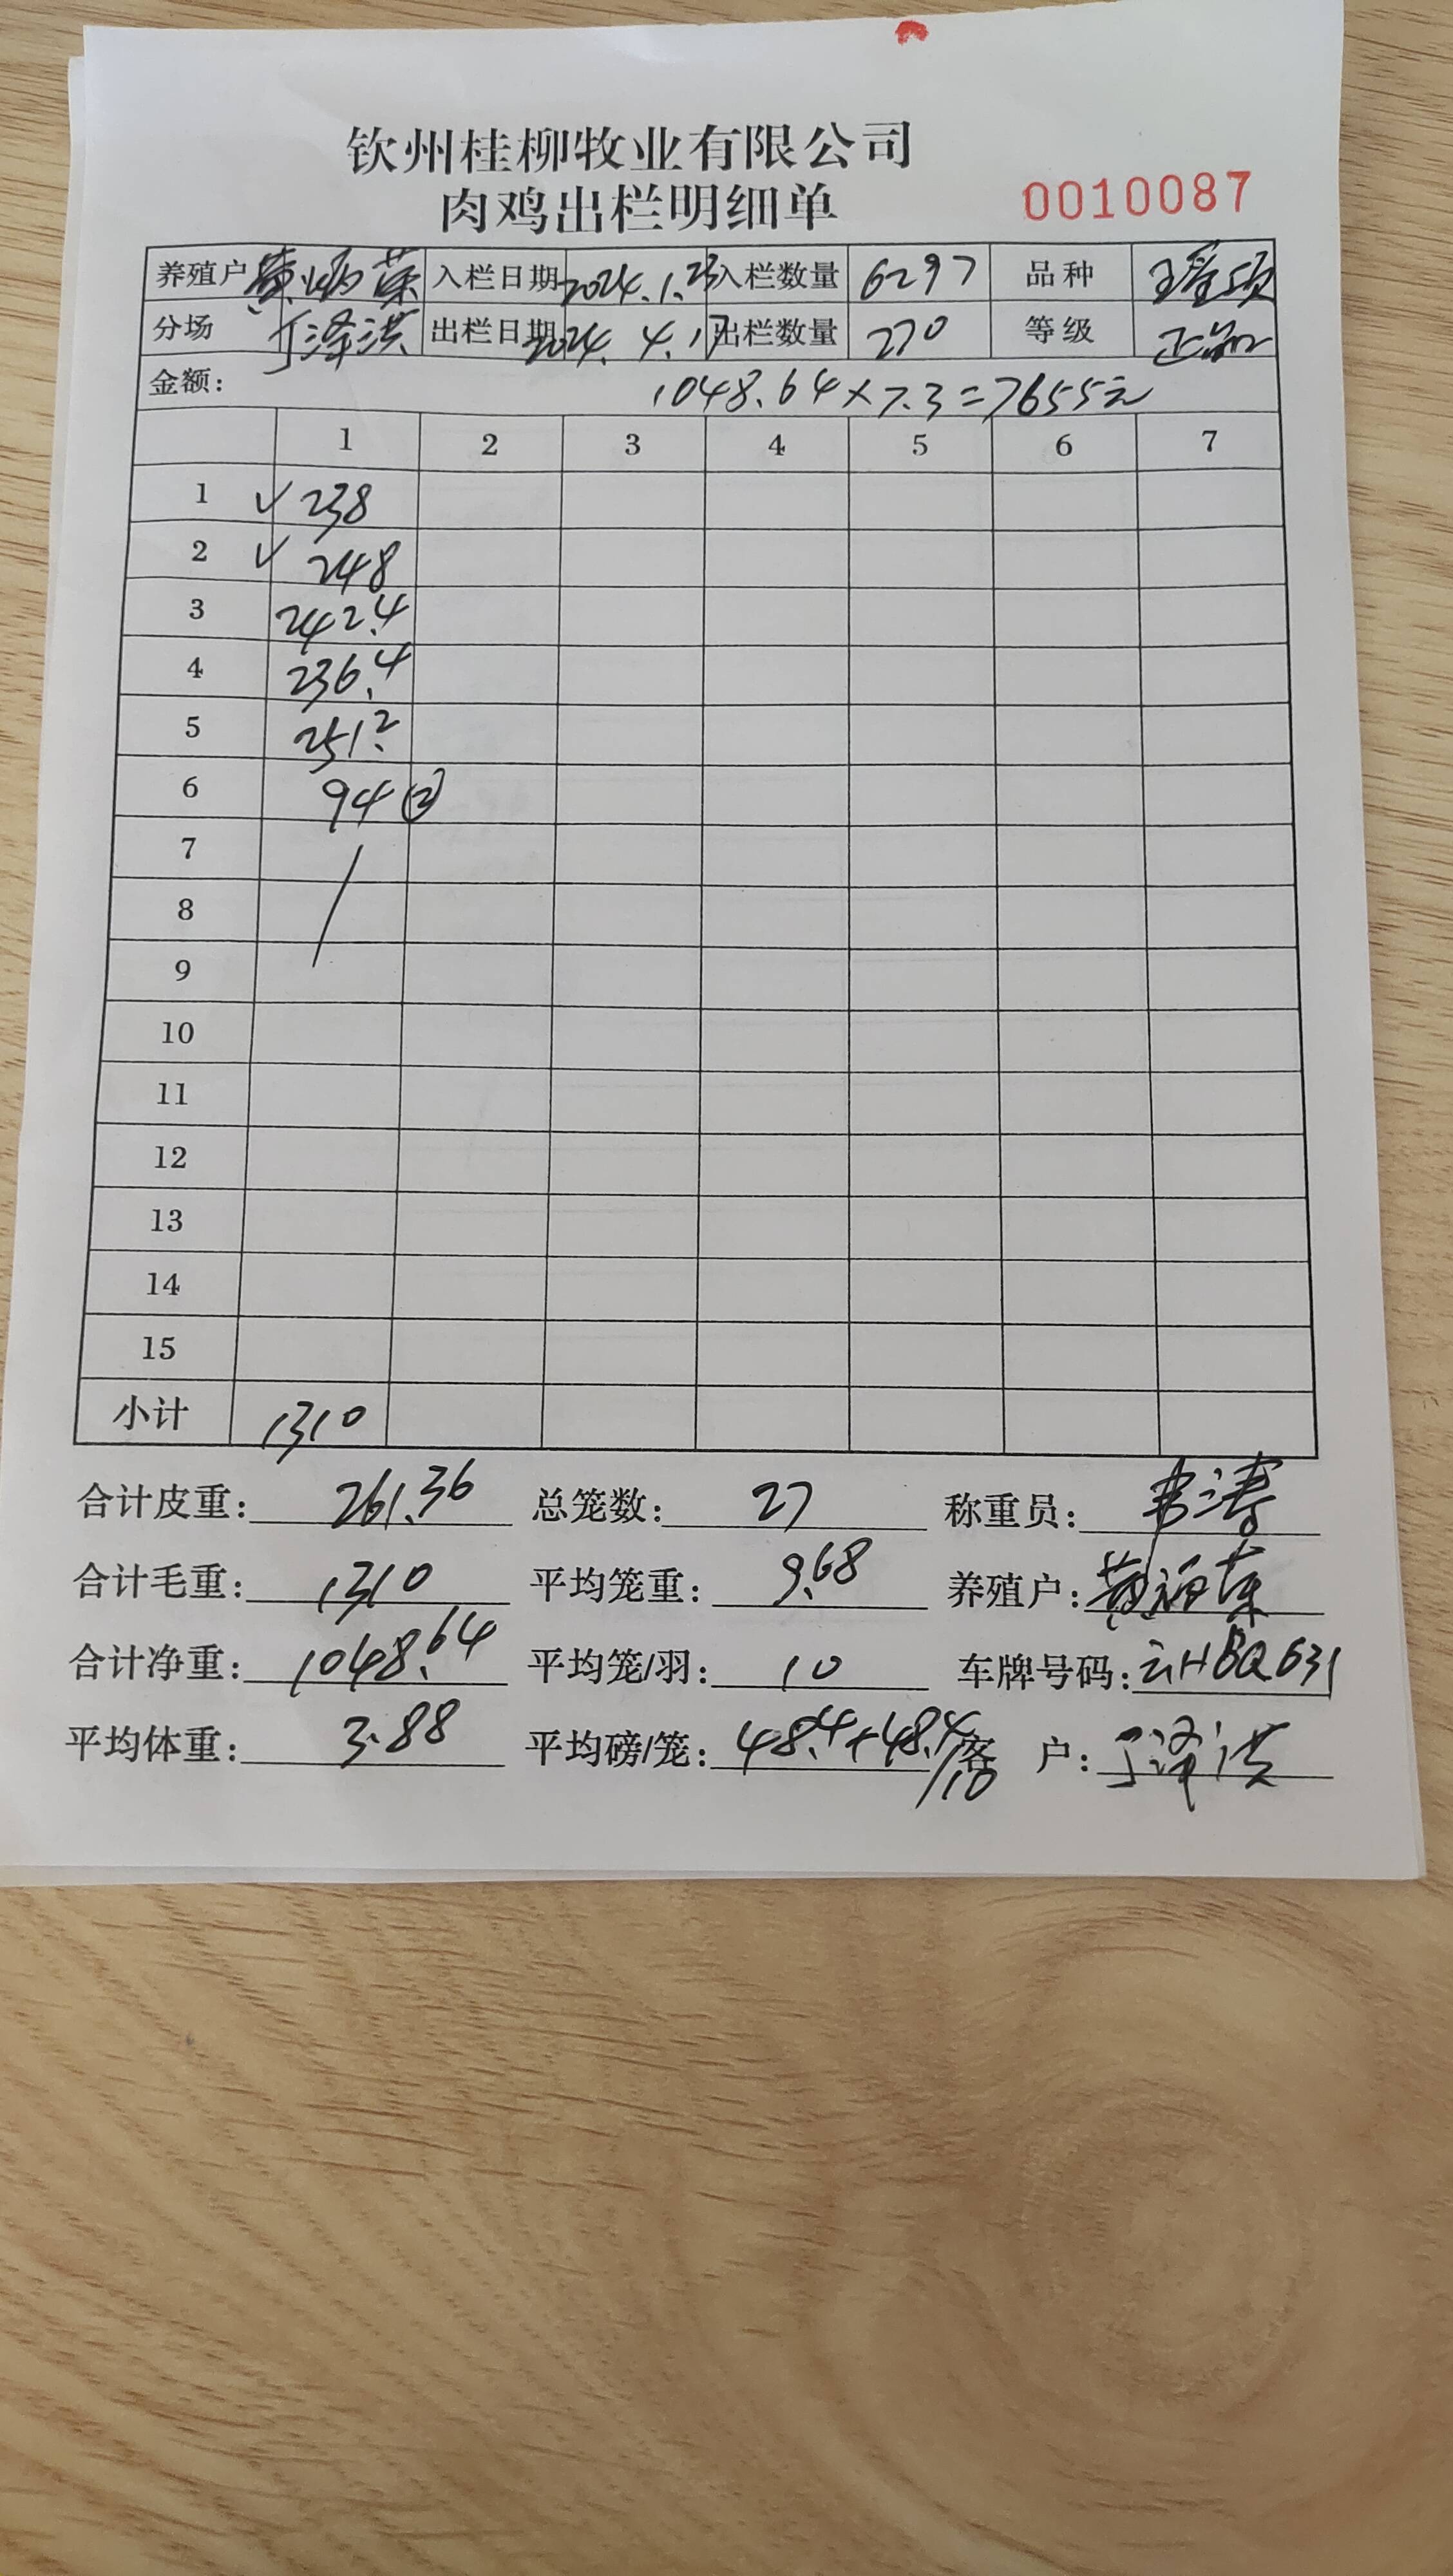 钦州桂柳牧业有限公司
肉鸡出栏明细单
0010087
养殖户 入栏日期 2024.1.23 入栏数量 6297 品种
分场 丁泽洪 出栏日期 2024. 4.17 出栏数量 270 等级 正品
金额: 1048.64×7.3=7655元
1 2 3 4 5 6 7
1 ✓ 238
2 ✓ 248
3 242.4
4 236.4
5 251.2
6 94 ②
7 /
8
9
10
11
12
13
14
15
小计 1310
合计皮重: 261.36 总笼数: 27 称重员:
合计毛重: 1310 平均笼重: 9.68 养殖户:
合计净重: 1048.64 平均笼/羽: 10 车牌号码: 云HBQ631
平均体重: 3.88 平均磅/笼: 48.4+48.4/10 客 户: 丁泽洪